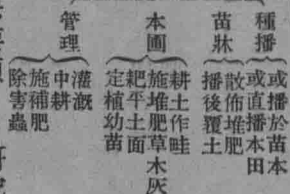 播種
或播於苗本
或直播本田
苗牀
散佈堆肥
播後覆土
本圃
耕土作畦
施堆肥草木灰
耙平土面
定植幼苗
管理
灌溉
中耕
施補肥
除害蟲